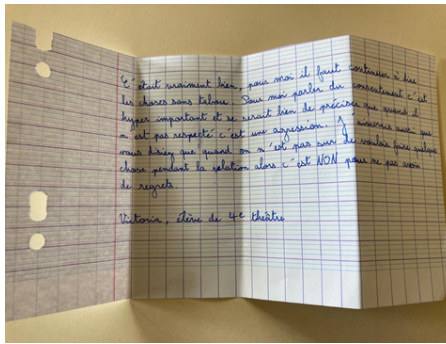 C'était vraiment bien, pour moi il faut continuer à dire
les choses sans tabou. Pour moi parler du consentement c'est
hyper important et se serait bien de préciser que quand il
n'est pas respecté c'est une agression. J'aimerais aussi que
vous disiez que quand on n'est pas sur de vouloir faire quelque
chose pendant la relation alors c'est NON pour ne pas avoir
de regrets.
Victoria, élève de 4e théâtre